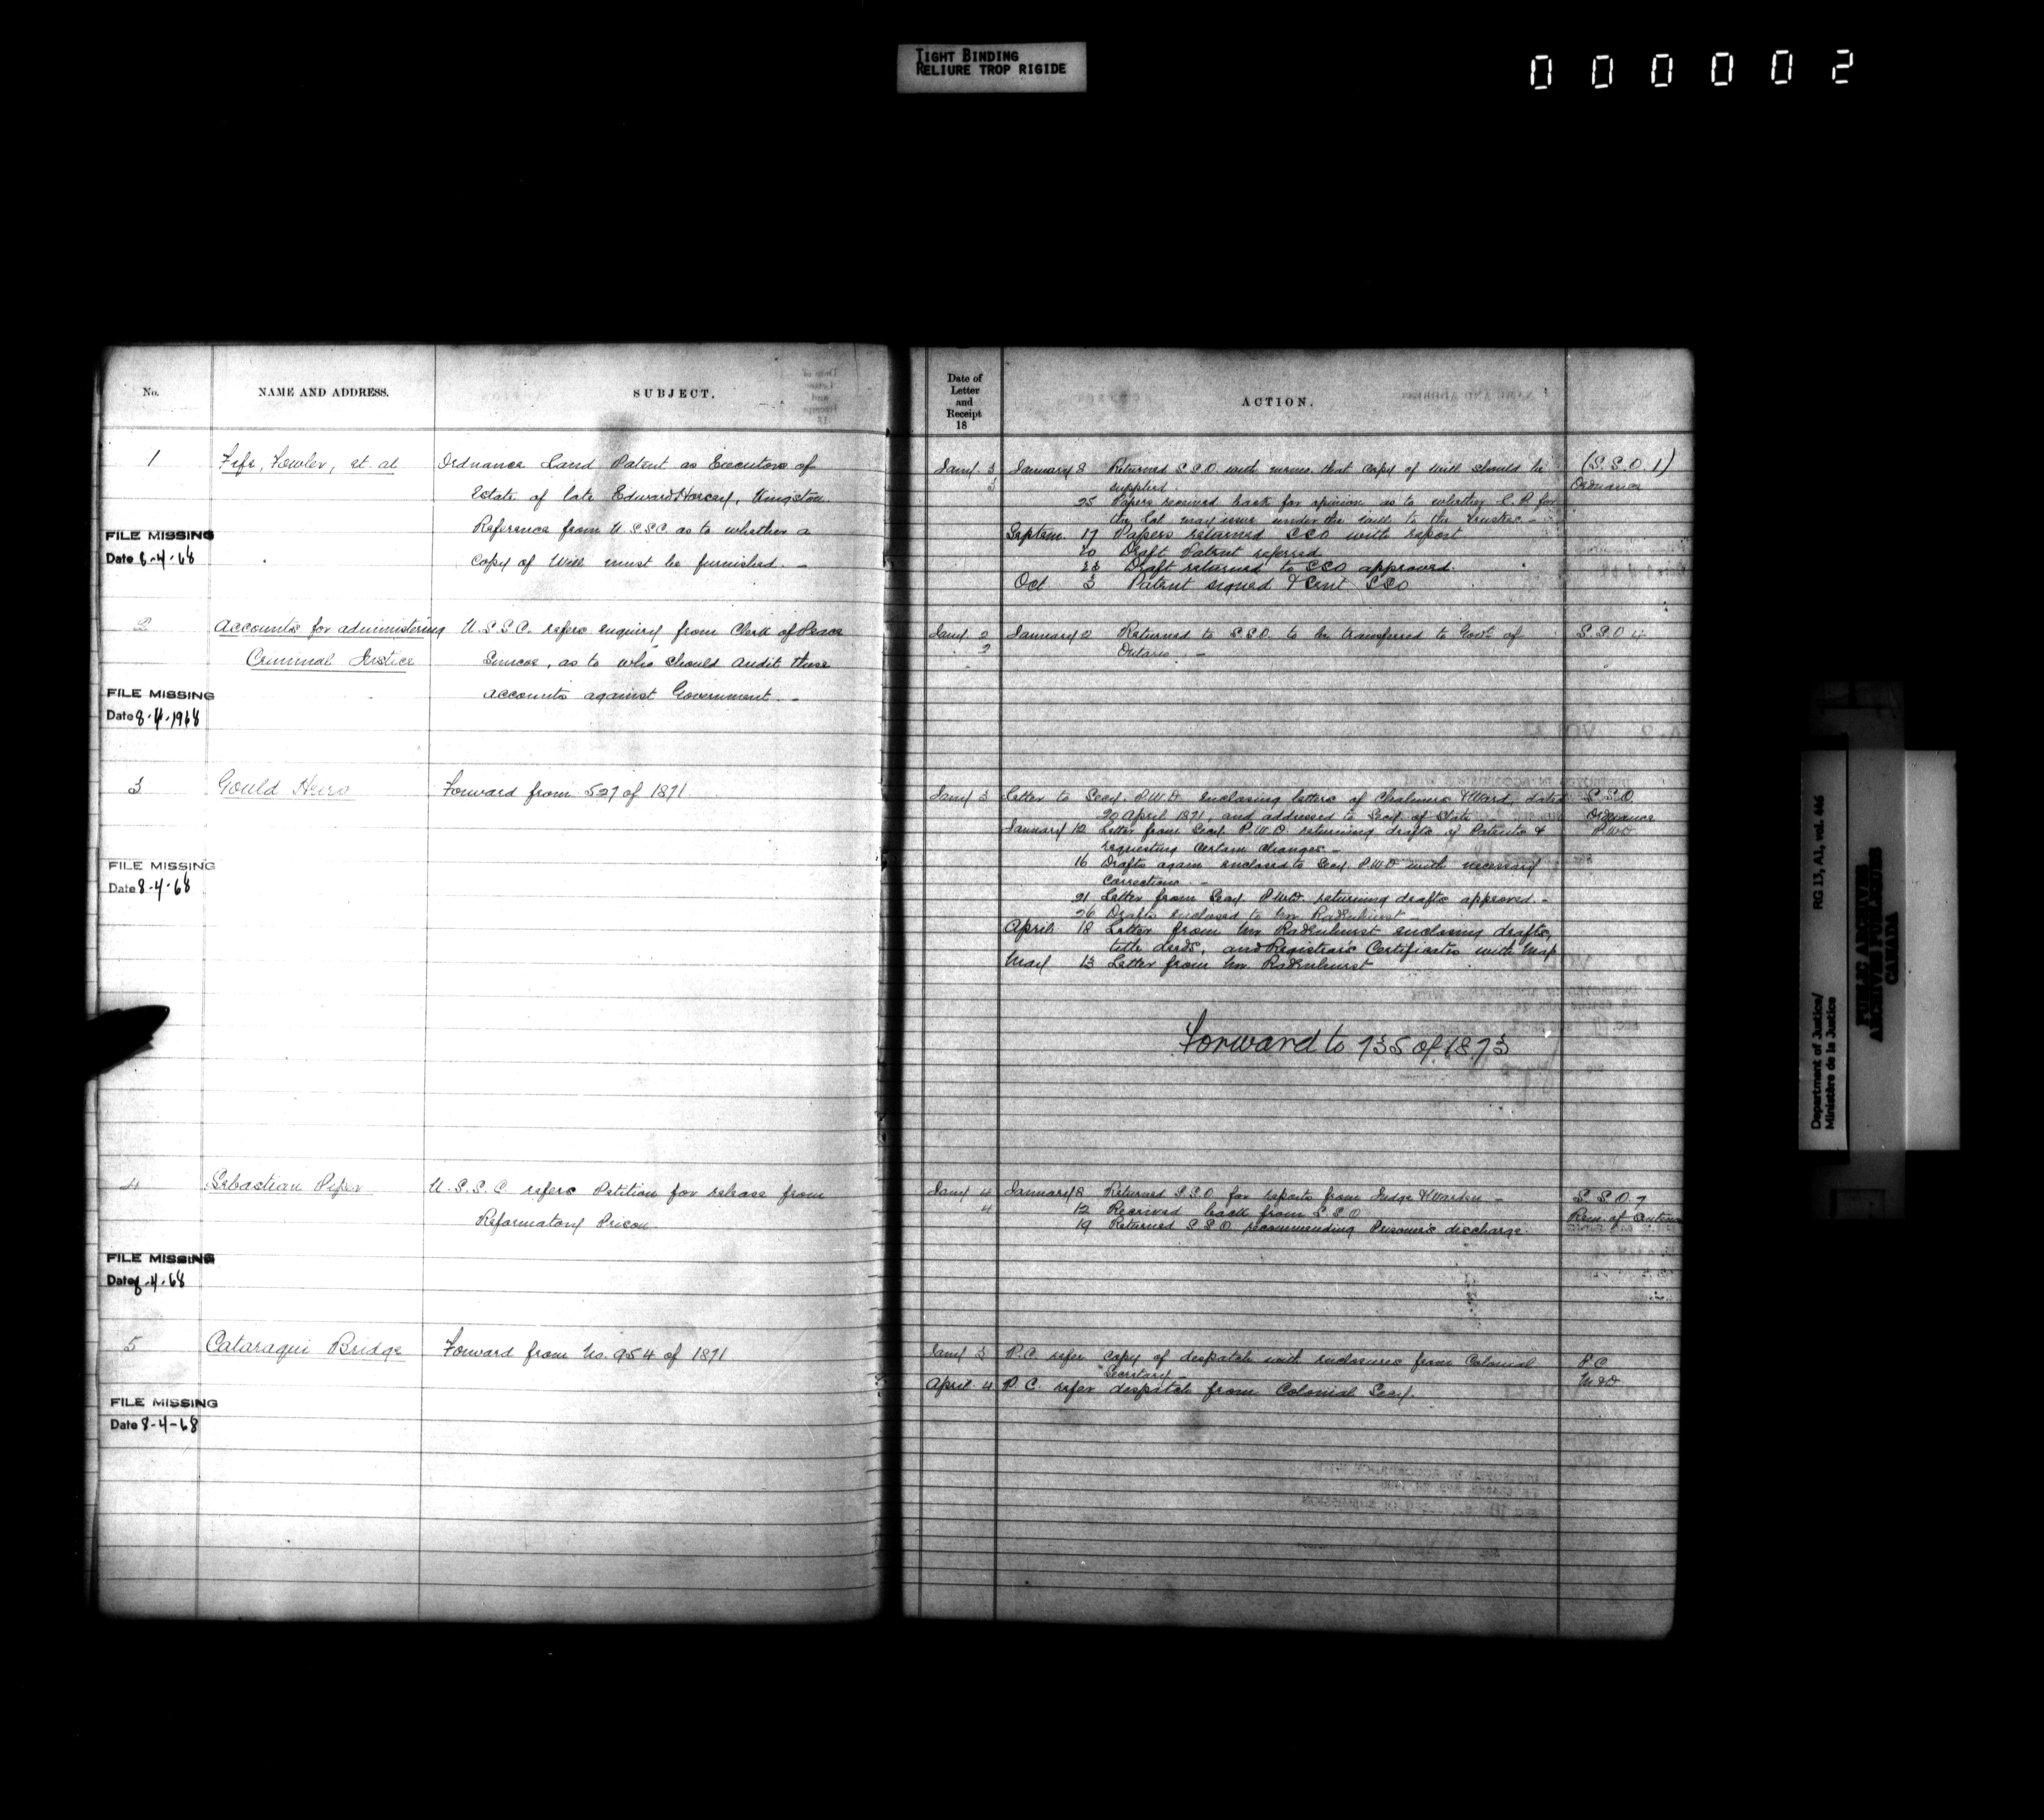 TIGHT BINDING
RELIURE TROP RIGIDE
000002
No.
NAME AND ADDRESS.
SUBJECT.
1
Fife, Fowler, et. al
Ordnance Land Patent as Executors of
Estate of late Edward Horsey, Kingston.
Reference from U.S.S.C. as to whether a
Copy of Will must be furnished. -
FILE MISSING
Date 8-4-68
2
Accounts for administering
Criminal Justice
U.S.S.C. refers enquiry from Clerk of Peace
Simcoe, as to who should audit these
accounts against Government. -
FILE MISSING
Date 8-4-1968
3
Gould Heirs
Forward from 527 of 1871
FILE MISSING
Date 8-4-68
4
Sebastian Piper
U.S.S.C. refers Petition for release from
Reformatory Prison.
FILE MISSING
Date 8-4-68
5
Cataraqui Bridge
Forward from No. 954 of 1871
FILE MISSING
Date 8-4-68
Date of
Letter
and
Receipt
18
ACTION.
Jany 3 January 8 Returned S.S.O. with memo. that copy of Will should be (S.S.O 1)
3 supplied. Ordnance
25 Papers received back for opinion as to whether L.P. for
the lot may issue under the will to the trustees -
Septem. 17 Papers returned SSO with report
20 Draft Patent referred
23 Draft returned to SSO approved.
Oct 3 Patent signed & sent SSO
Jany 2 January 2 Returned to S.S.O. to be transferred to Govt. of S.S.O 4
2 Ontario. -
Jany 3 Letter to Secy. P.W.D. enclosing letters of Chalmers & Ward, dated S.S.O.
20 April 1871, and addressed to Secy. of State Ordnance
January 12 Letter from Secy. P.W.D. returning drafts of Patents & P.W.D
requesting certain changes -
16 Drafts again enclosed to Secy. P.W.D with necessary
Corrections. -
21 Letter from Secy. P.W.D. returning drafts approved. -
26 Drafts enclosed to Mr. Radenhurst -
April 18 Letter from Mr Radenhurst enclosing drafts,
title deeds, and Registrar's Certificates with Map
May 13 Letter from Mr. Radenhurst
Forward to 735 of 1873
Jany 4 January 8 Returned S.S.O for reports from Judge & Warden - S.S.O. 7
4 12 Received back from S.S.O Rem. of Sentence
19 Returned S.S.O. recommending Prisoner's discharge.
Jany 3 P.C. refer copy of despatch with enclosures from Colonial P.C.
Secretary - M & D
April 4 P.C. refer despatch from Colonial Secy.
Department of Justice/
Ministère de la Justice
RG 13, A1, vol. 446
PUBLIC ARCHIVES
ARCHIVES PUBLIQUES
CANADA